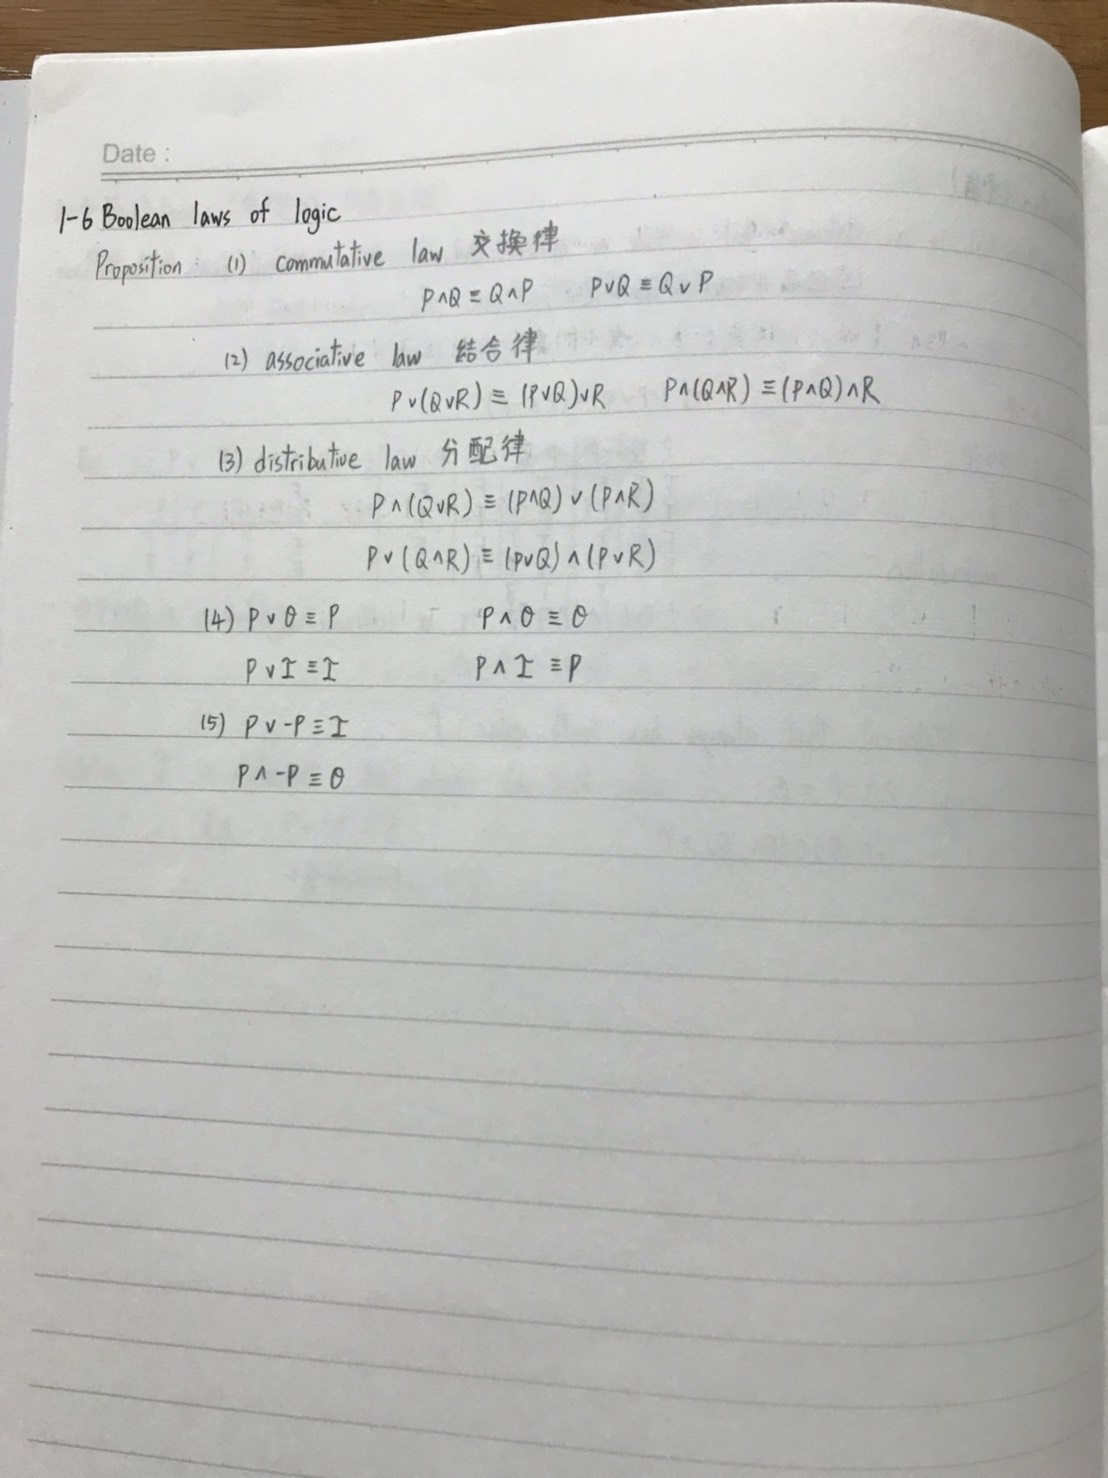 Date :
1-6 Boolean laws of logic
Proposition : (1) commutative law 交換律
P∧Q ≡ Q∧P P∨Q ≡ Q∨P
(2) associative law 結合律
P∨(Q∨R) ≡ (P∨Q)∨R P∧(Q∧R) ≡ (P∧Q)∧R
(3) distributive law 分配律
P∧(Q∨R) ≡ (P∧Q)∨(P∧R)
P∨(Q∧R) ≡ (P∨Q)∧(P∨R)
(4) P∨O ≡ P P∧O ≡ O
P∨I ≡ I P∧I ≡ P
(5) P∨-P ≡ I
P∧-P ≡ O